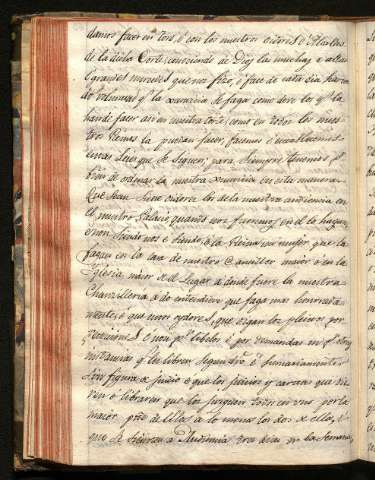 damos facer en ton, è con los nuestros oidores è Alcaldes
de la dicha Corte, conosciendo de Dios las muchas è altas
è grandes mercedes que nos fizo, è face de cada dia
do voluntad q.e la xusticia se faga como deve los q.e la
han de facer asi en nuestra corte, como en todos los nues-
tros Reinos la puedan facer, facemos è establecemos
estas Leies que se siguen; para siempre
de ordenar la nuestra xusticia en esta manera.
Que sean siete oidores los de la nuestra audiencia en
el nuestro Palacio quando nos fueremos en el lo hagan
è non siendo nos è siendo i la Reina mi muger, que la
fagan en la casa de nuestro Canciller maior ò en la
Iglesia maior de el Lugar a donde fuere la nuestra
Chancilleria a do entendieren que faga mas honrrada
mente, è que unos oydores, que oigan los pleitos por
peticiones è non p.r libelos è por demandas ni p.r
è q.e los libren segun dro. è sumariamente
sin figura de juicio è que los juicios y cartas que die-
ren ò libraren que los juzguen todos en uno por la
maior p.te de ellos a lo menos los dos de ellos, è
que se sienten a Audiencia tres dias en la semana,